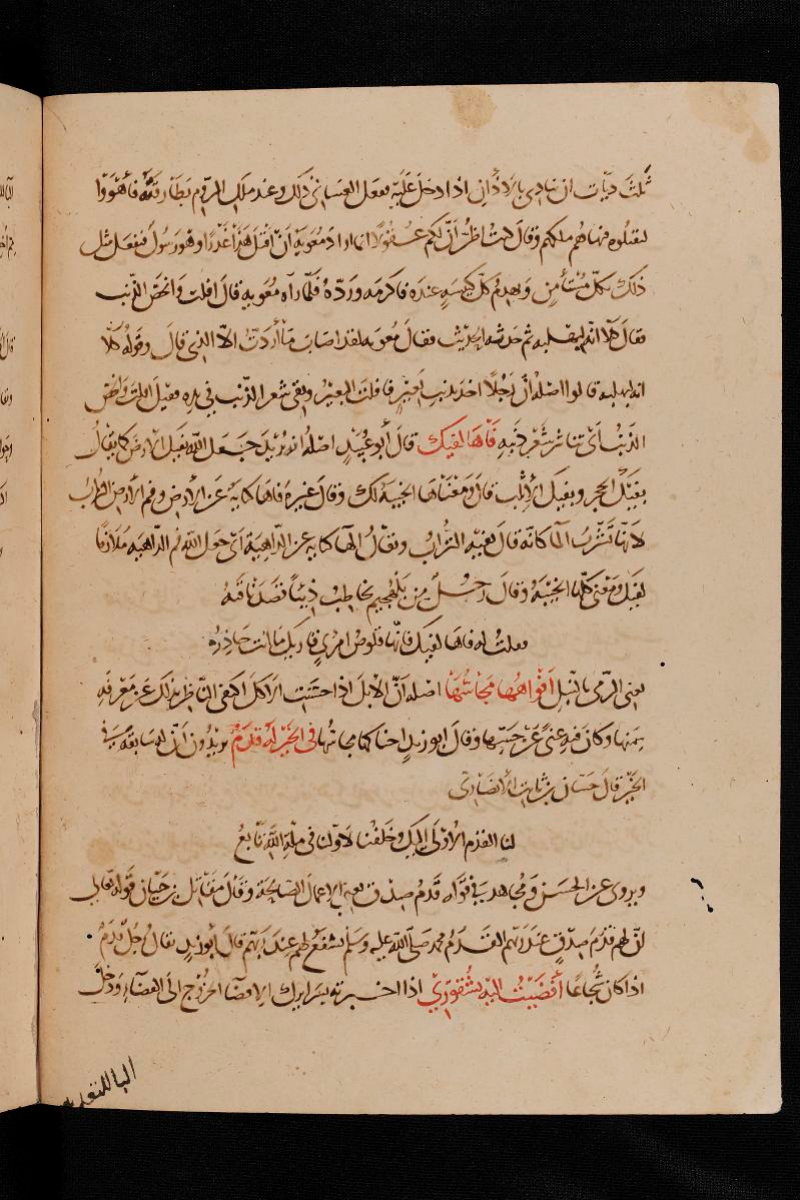 ثلث ديات ان ينادى بالاذان اذا دخل عليه ففعل الغسانى ذلك وعند ملك الروم بطارقته فاهووا
ليقتلوه فنهاهم ملكهم وقال كنت اظن ان لكم عقولا انما اراد معوية ان اقتل هذا غدرا وهو رسول فيفعل مثل
ذلك بكل مستأمن ويهدم كل كنيسة عنده فاكرمه ورده فلما راه معوية قال افلت وانحص الذنب
فقال كلا انه لبهلبه ثم حدثه الحديث فقال معوية لقد اصاب ما اردت الا الذى قال وقوله كلا
انه لبهلبه قالوا اصله ان رجلا اخذ بذنب بعير فافلت البعير وبقى شعر الذنب فى يده فقيل افلت وانحص
الذنب اى تناثر شعر ذنبه فاها لفيك قال أبو عبيد اصله انه يريد جعل الله بفيك الارض كما يقال
بفيك الحجر وبفيك الاثلب قال ومعناها الخيبة لك وقال غيره فاها كناية عن الارض وفم الارض التراب
لانها تشرب الما فكانه قال بفيه التراب ويقال الها كناية عن الداهية اى جعل الله فم الداهية ملازما
لفيك ومعنى كلها الخيبة وقال رجل من بلهجيم يخاطب ذئبا قصد ناقته
فقلت له فاها لفيك فانها قلوص امرئ قاريك ما انت حاذره
يعنى الرمى بالنبل أفواهها مجاسها اصله ان الابل اذا احسنت الاكل اكتفى الناظر بذلك عن معرفة
سمنها وكان فيه غنى عن جسها وقال ابو زيد احناكها مجاسها فى الخير له قدم يريدون ان له سابقة فى
الخير قال حسان بن ثابت الانصارى
لنا القدم الاولى اليك وخلفنا لاولنا فى ملة الله تابع
ويروى عن الحسن ومجاهد فى قوله قدم صدق يعنى الاعمال الصالحة وقال مقاتل بن حيان فى قوله تعالى
ان لهم قدم صدق عند ربهم القدم محمد صلى الله عليه وسلم يشفع لهم عند ربهم قال أبو زيد يقال رجل قدم
اذا كان شجاعا أفضيت اليه بشقورى اذا اخبرته بسرايرك الافضا الخروج الى الفضاء ودخل
البا للتعدية